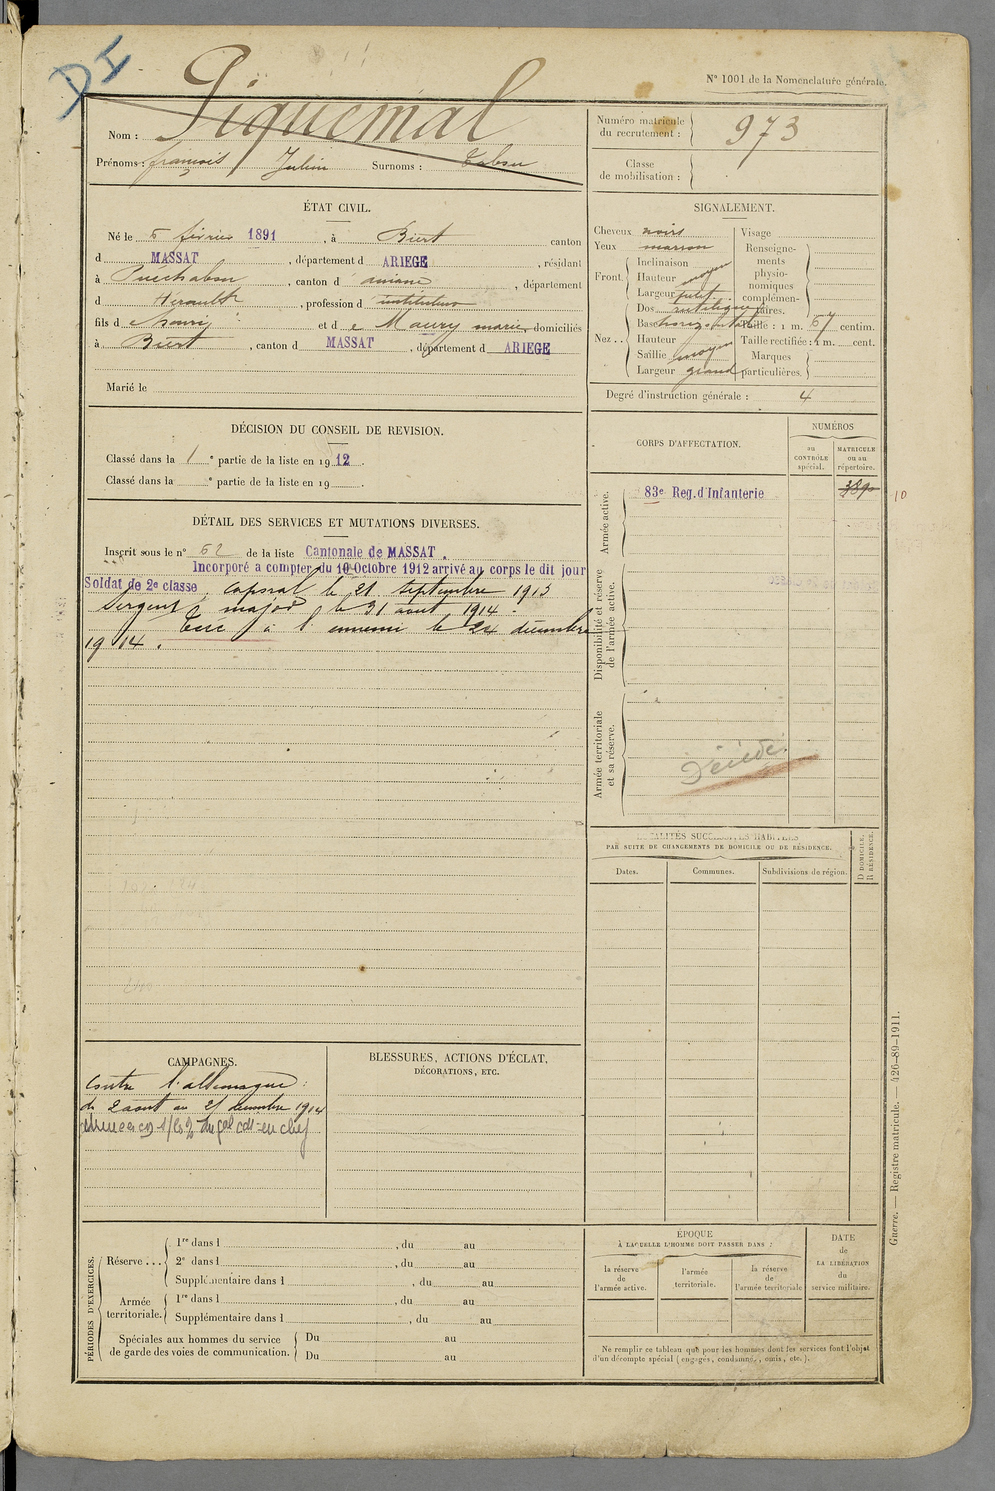 DI
N° 1001 de la Nomenclature générale.
Nom : Piquemal
Prénoms : françois Julien Surnoms :
Numéro matricule du recrutement : 973
Classe de mobilisation :
ÉTAT CIVIL.
Né le 5 février 1891, à Biert canton
d MASSAT, département d ARIEGE, résidant
à Puéchabon, canton d aniane, département
d Hérault, profession d instituteur
fils d et d e Maury marie domiciliés
à Biert, canton d MASSAT, département d ARIEGE
Marié le
SIGNALEMENT.
Cheveux noirs
Yeux marron
Front. Inclinaison
Hauteur moyen
Largeur petit
Nez .. Dos rectiligne
Base horizontale
Hauteur
Saillie moyen
Largeur grand
Visage
Renseignements physionomiques complémentaires.
Taille : 1 m. 67 centim.
Taille rectifiée : 1 m. cent.
Marques particulières.
Degré d'instruction générale : 4
DÉCISION DU CONSEIL DE REVISION.
Classé dans la 1 e partie de la liste en 1912.
Classé dans la e partie de la liste en 19 .
CORPS D'AFFECTATION.
NUMÉROS
au CONTRÔLE spécial.
MATRICULE ou au répertoire.
Armée active.
83e Reg. d'Infanterie
10
Disponibilité et réserve de l'armée active.
Armée territoriale et sa réserve.
Décédé.
DÉTAIL DES SERVICES ET MUTATIONS DIVERSES.
Inscrit sous le n° 62 de la liste Cantonale de MASSAT.
Incorporé a compter du 10 Octobre 1912 arrivé au corps le dit jour
Soldat de 2e classe, caporal le 21 septembre 1913
Sergent major le 31 aout 1914.
Tué à l'ennemi le décembre
1914.
LOCALITÉS SUCCESSIVES HABITÉES
PAR SUITE DE CHANGEMENTS DE DOMICILE OU DE RÉSIDENCE.
Dates.
Communes.
Subdivisions de région.
D DOMICILE.
R RÉSIDENCE.
CAMPAGNES.
Contre l'allemagne :
du 2 aout au 21 décembre 1914
BLESSURES, ACTIONS D'ÉCLAT,
DÉCORATIONS, ETC.
PÉRIODES D'EXERCICES.
Réserve ... 1re dans l , du au
2e dans l , du au
Supplémentaire dans l , du au
Armée territoriale. 1re dans l , du au
Supplémentaire dans l , du au
Spéciales aux hommes du service de garde des voies de communication. Du au
Du au
ÉPOQUE
À LAQUELLE L'HOMME DOIT PASSER DANS :
la réserve de l'armée active.
l'armée territoriale.
la réserve de l'armée territoriale
DATE de LA LIBÉRATION du service militaire.
Ne remplir ce tableau que pour les hommes dont les services font l'objet
d'un décompte spécial (engagés, condamnés, omis, etc.).
Guerre. — Registre matricule. — 426-89-1911.